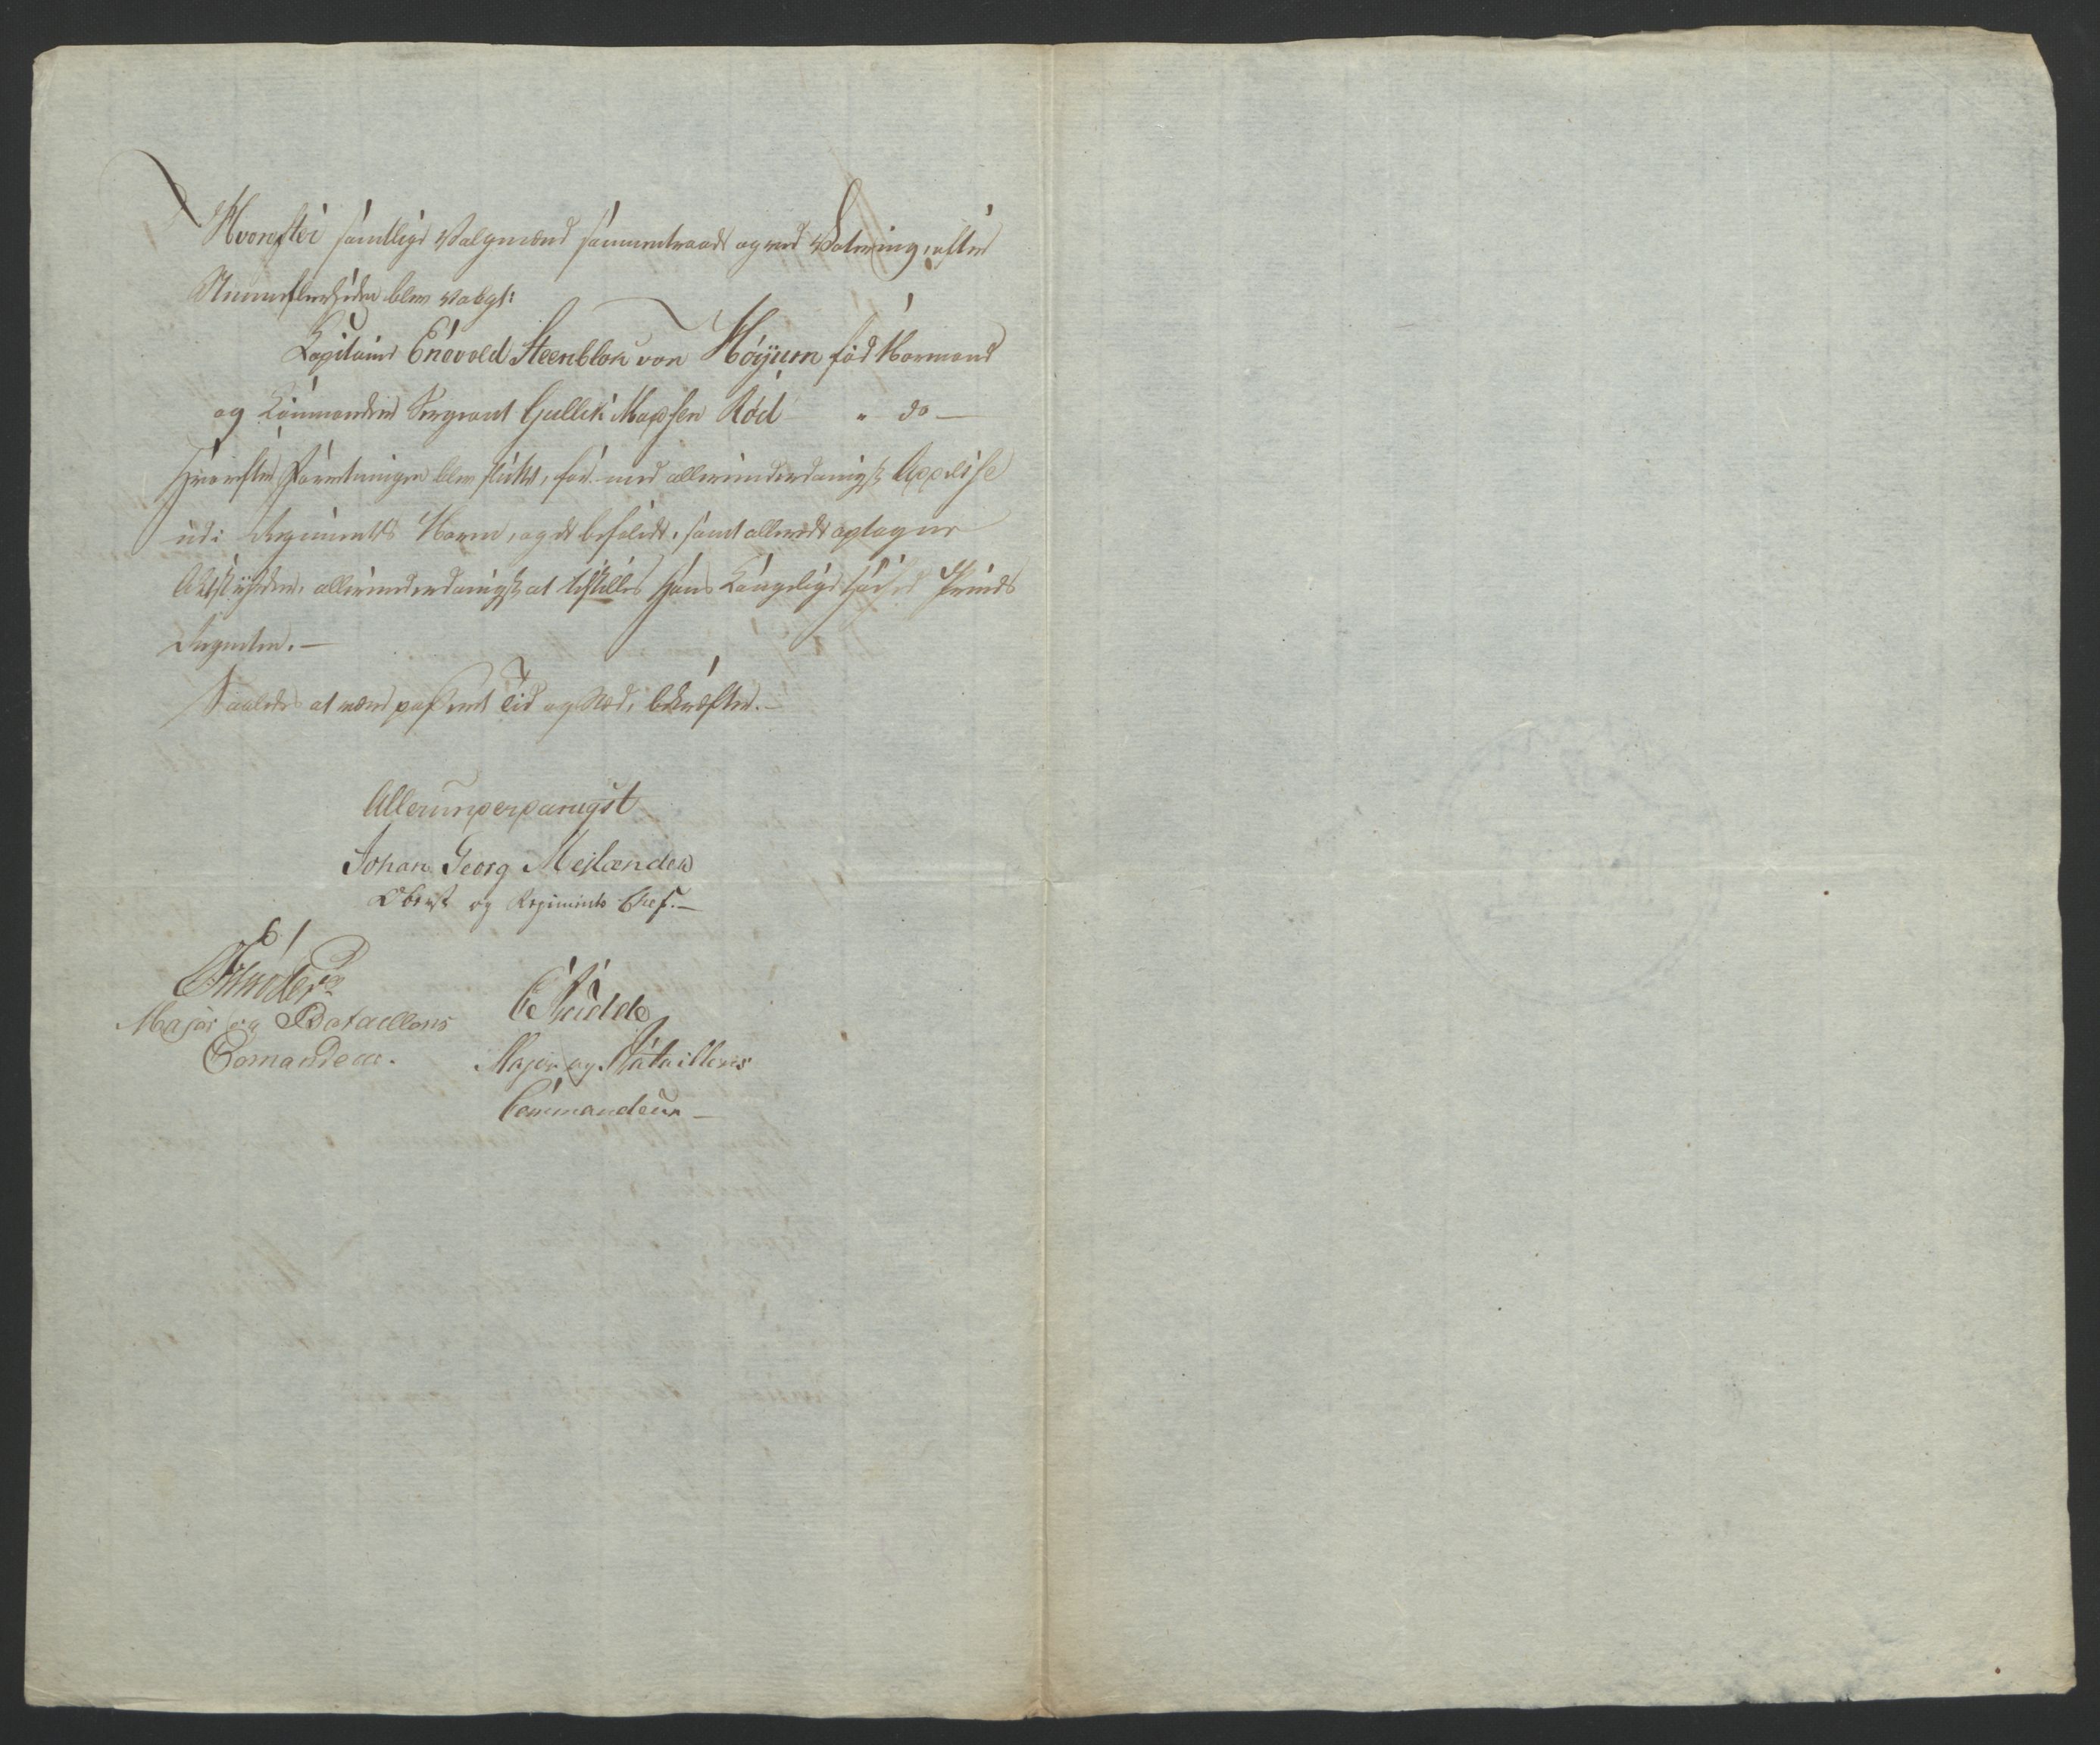 Hvorefter samtlige Valgmænd sammentraadt og ved Votering, efter
Stemmefleerheden blev valgt:
Capitaine Enevold Steenblok von Høÿum fød Normand
og Commandeer Sergeant Gullik Madsen Röd " do —
Hvorefter Foretningen blev sluttet, for med allerunderdanigst Adresse
udi Regimentets Navn, og det befalede, samt allerede optagne
Aktstykker, allerunderdanigst at tilstilles Hans Kongelige Høihed Prinds
Regenten. —
Saaledes at være passeret Tid og Sted, bekræfter. —
Allerunderdanigst
Johan Georg Mejlænder
Oberst og Regiments Chef. —
Major og Bataillons
Comandeur.
Major og Bataillons
Commandeur —